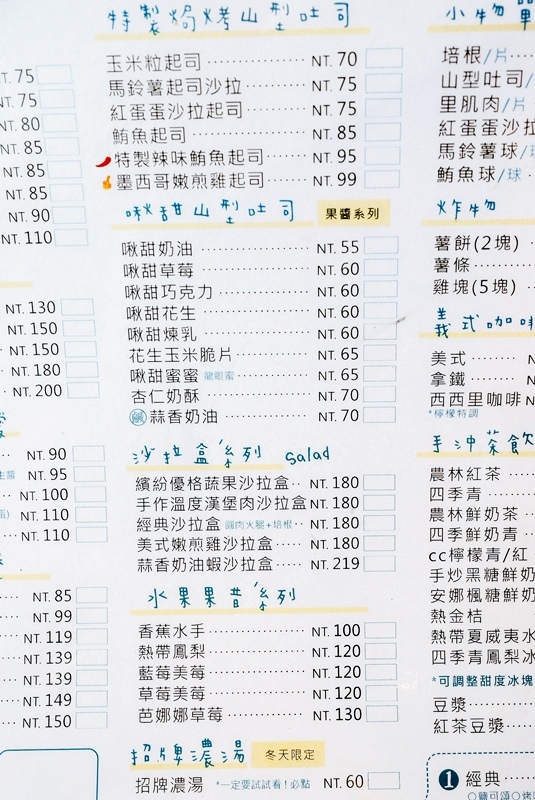 特製焗烤山型吐司
玉米粒起司 NT. 70
馬鈴薯起司沙拉 NT. 75
紅蛋蛋沙拉起司 NT. 75
鮪魚起司 NT. 85
特製辣味鮪魚起司 NT. 95
墨西哥嫩煎雞起司 NT. 99
啾甜山型吐司 果醬系列
啾甜奶油 NT. 55
啾甜草莓 NT. 60
啾甜巧克力 NT. 60
啾甜花生 NT. 60
啾甜煉乳 NT. 60
花生玉米脆片 NT. 65
啾甜蜜蜜 龍眼蜜 NT. 65
杏仁奶酥 NT. 70
鹹 蒜香奶油 NT. 70
沙拉盒系列 salad
繽紛優格蔬果沙拉盒 NT. 180
手作溫度漢堡肉沙拉盒 NT. 180
經典沙拉盒 圓肉火腿+培根 NT. 180
美式嫩煎雞沙拉盒 NT. 180
蒜香奶油蝦沙拉盒 NT. 219
水果果昔系列
香蕉水手 NT. 100
熱帶鳳梨 NT. 120
藍莓美莓 NT. 120
草莓美莓 NT. 120
芭娜娜草莓 NT. 130
招牌濃湯 冬天限定
招牌濃湯 *一定要試試看!必點 NT. 60
NT. 75
NT. 75
NT. 80
NT. 85
NT. 85
NT. 85
NT. 90
NT. 110
NT. 130
NT. 150
NT. 150
NT. 180
NT. 200
NT. 90
NT. 95
NT. 100
NT. 110
NT. 110
NT. 85
NT. 99
NT. 119
NT. 139
NT. 139
NT. 149
NT. 150
小物單
培根/片
山型吐司/
里肌肉/片
紅蛋蛋沙拉
馬鈴薯球/球
鮪魚球/球
炸物
薯餅(2塊)
薯條
雞塊(5塊)
義式咖啡
美式
拿鐵 N
西西里咖啡 N
*檸檬特調
手沖茶飲
農林紅茶
四季青
農林鮮奶茶
四季鮮奶青
cc檸檬青/紅
手炒黑糖鮮奶
安娜楓糖鮮奶
熱金桔
熱帶夏威夷水
四季青鳳梨冰
*可調整甜度冰塊
豆漿
紅茶豆漿
1 經典
○鹽可頌○烤